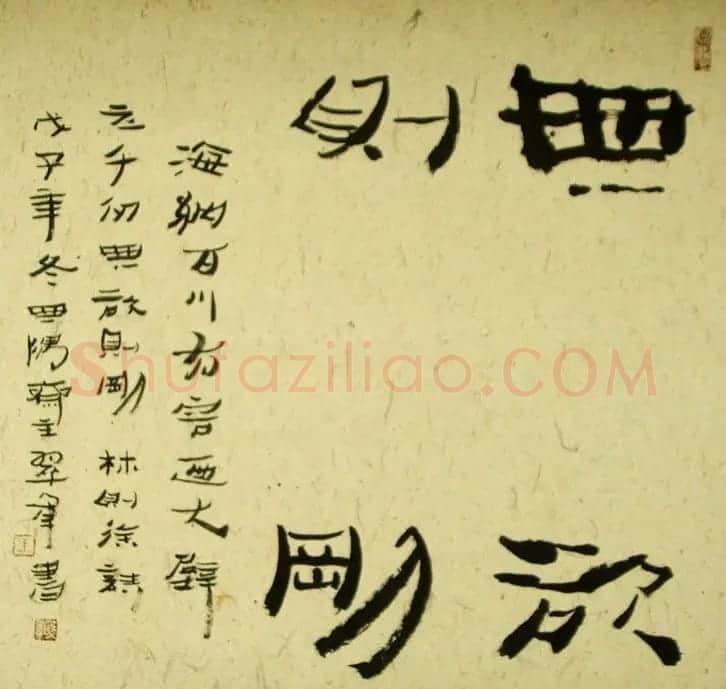 無欲
則剛
海納百川有容迺大壁
立千仞無欲則剛 林則徐
戊子年冬四隅齋主翠峯書
Shufaziliao.com